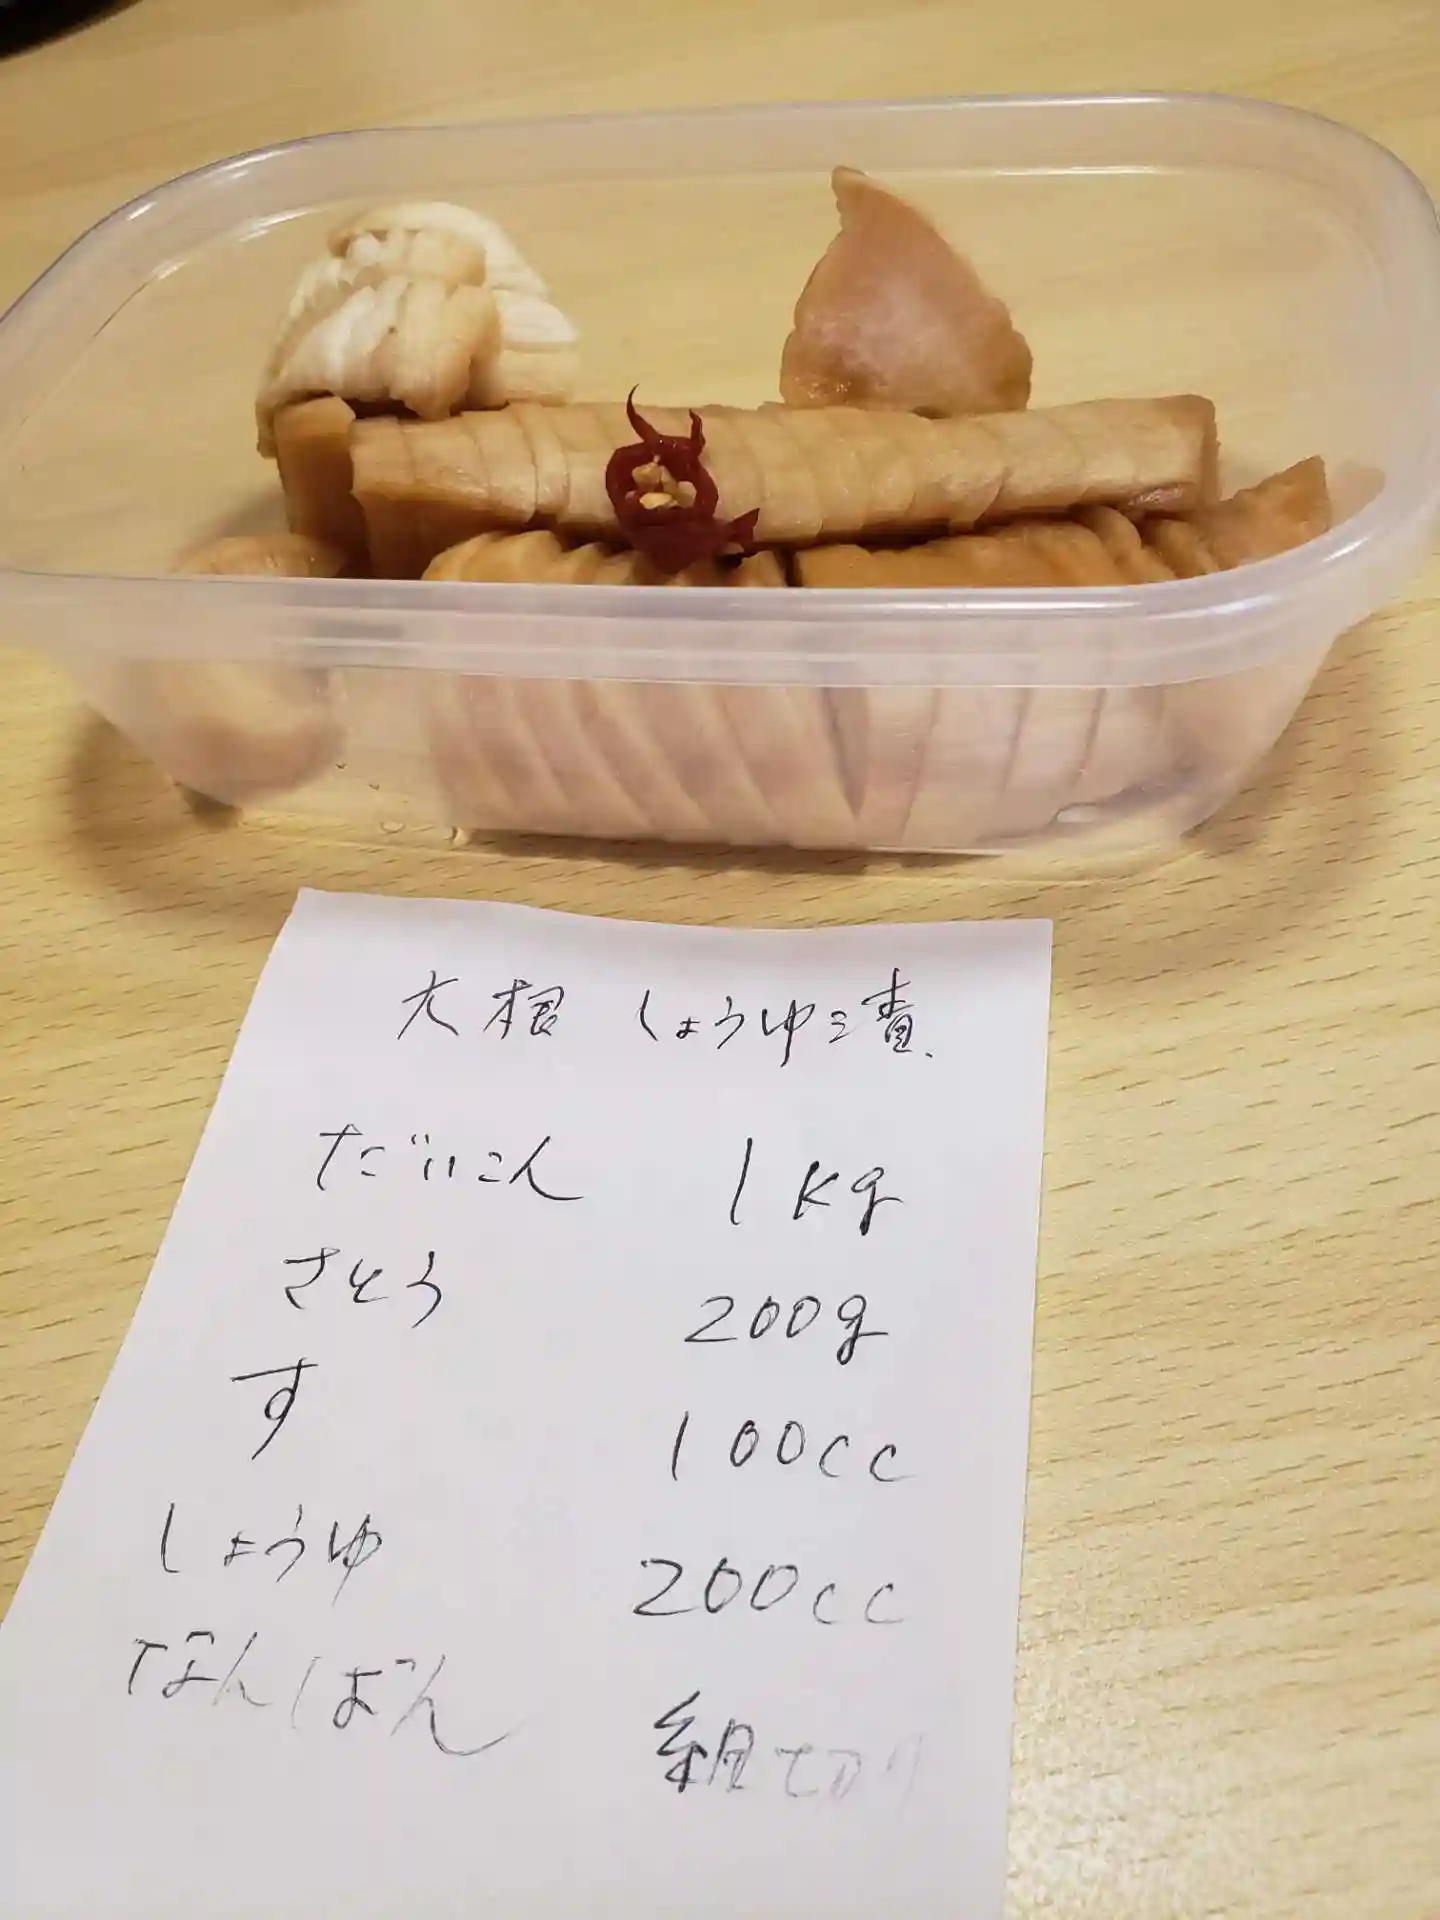 大根 しょうゆ漬
だいこん 1Kg
さとう 200g
す 100cc
しょうゆ 200cc
なんばん 細切り